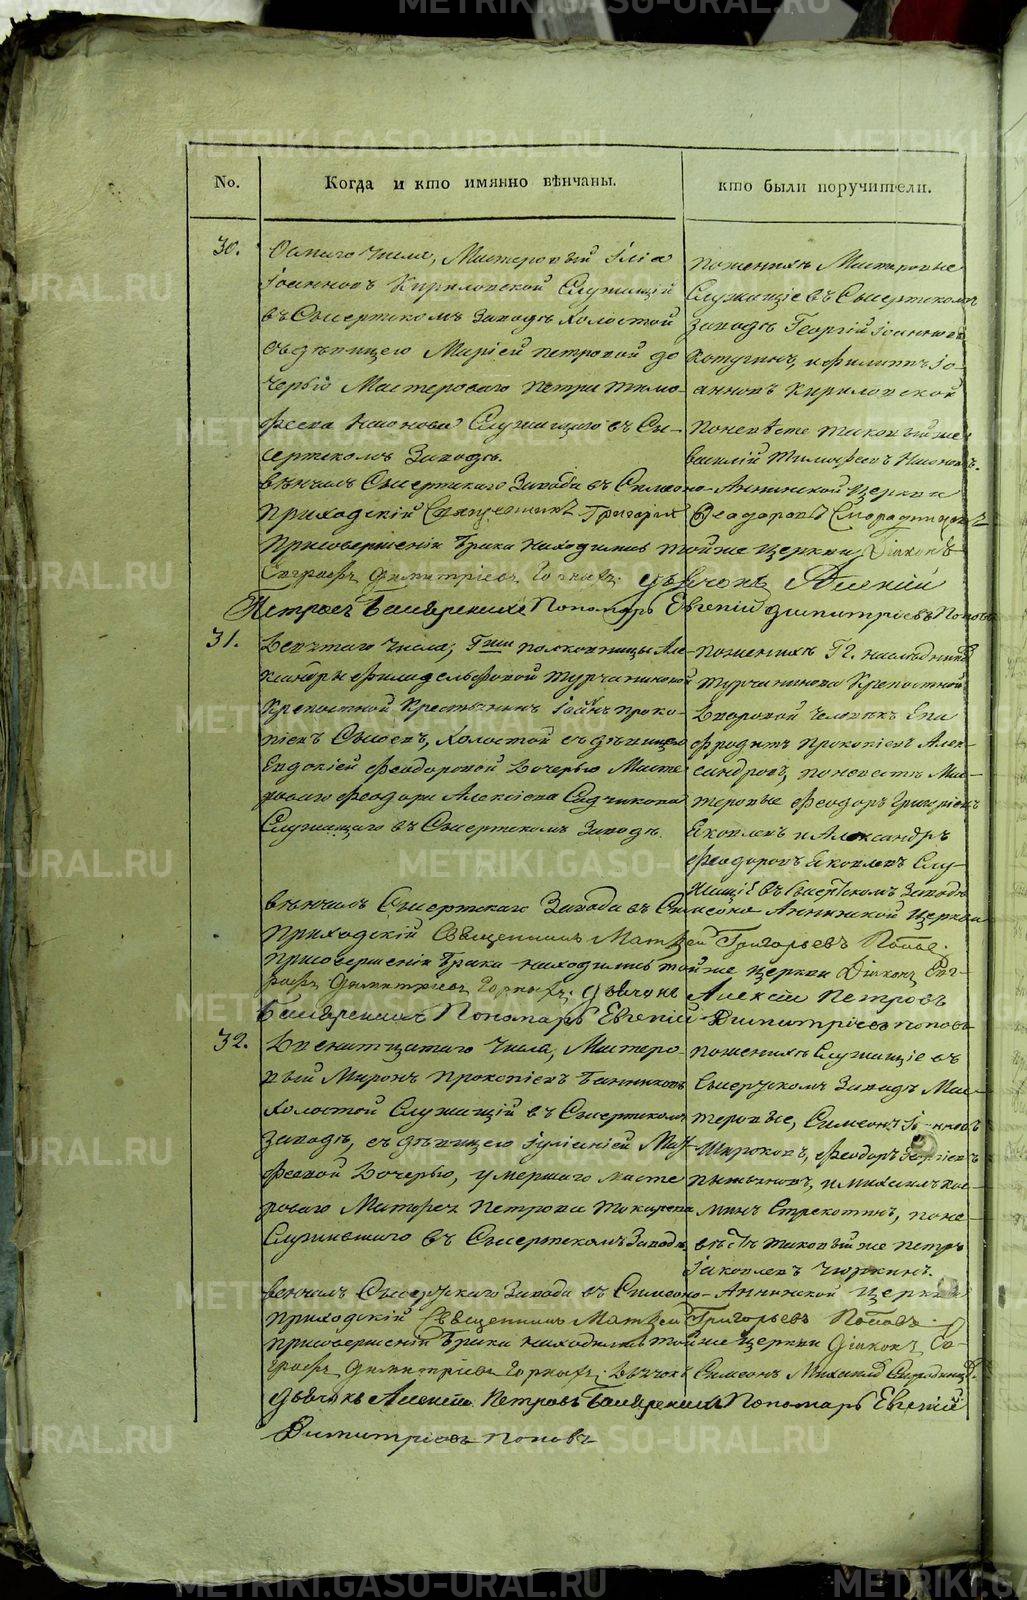 METRIKI.GASO-URAL.RU
No.
Когда и кто имянно вѣнчаны.
кто были поручители.
30.
Осмаго числа, Мастеровый Iлiа
Iоанновъ Кириловской Служащiй
въ Сысертскомъ Заводѣ Холостой
съ дѣвицею Марiей Петровой до
черью Мастероваго Петра Тимо-
феева Служащаго въ Сы-
сертскомъ Заводѣ.
поженихѣ Мастеровые
Служащiе въ Сысертскомъ
Заводѣ Георгiй Iоанновъ
и Филиппъ Iо-
анновъ Кириловской
поневѣсте таковый же
Василiй Тимофеевъ
вѣнчалъ Сысертскаго Завода въ Симеоно-Аннинской Церкви
Приходскiй Священникъ Григорiй Феодоровъ
Присовершенiи брака находились тойже церкви Дiаконъ
Евграфъ Димитрiевъ дьячокъ Алексiй
Петровъ Пономарь Евгенiй Димитрiевъ Поповъ
31.
Девятаго числа, Гжи полковницы Але-
ксандры Филадельфовой Турчаниновой
Крепостной Крестьянинъ Iоаннъ Проко-
пiевъ Сысоевъ, Холостой съ дѣвицею
Евдокiей Феодоровой Дочерью Масте
роваго Феодора Алексiева Садчикова
Служащаго въ Сысертскомъ Заводѣ.
поженихѣ Гг. наследниковъ
Турчанинова Крепостной
Дворовой Человѣкъ Епа
фродитъ Прокопiевъ Алек-
сандровъ, поневестѣ Мас-
теровые Феодоръ Григорiевъ
Яковлевъ и Александръ
Феодоровъ Яковлевъ Слу-
жащiе въ Сысертскомъ Заводѣ
вѣнчалъ Сысертскаго Завода въ Симеоно Аннинской Церкви
Приходскiй Священникъ Матвей Григорьевъ Поповъ.
Присовершенiи брака находились тойже церкви Дiаконъ Евг-
рафъ Димитрiевъ дьячокъ Алексiй Петровъ
Пономарь Евгенiй Димитрiевъ Поповъ
32.
Двенатцатаго числа, Мастеро-
вый Миронъ Прокопiевъ Банниковъ
Холостой Служащiй въ Сысертскомъ
Заводѣ, съ дѣвицею Iулiанiей Мат-
феевой Дочерью, умершаго масте
роваго Матфея Петрова Токарева
Служившаго въ Сысертскомъ Заводѣ
поженихѣ Служащiе въ
Сысертскомъ Заводѣ Мас-
теровые, Симеонъ
Широковъ, Феодоръ Георгiевъ
и Михаилъ Кос-
минъ Стрекотинъ, поне-
вѣстѣ таковый же Петръ
Iаковлевъ Чюркинъ.
венчалъ Сысертскаго Завода въ Симеоно-Аннинской Церкви
Приходскiй Священникъ Матвей Григорьевъ Поповъ.
Присовершенiи брака находились тойже церкви Дiаконъ Ев-
графъ Димитрiевъ Дьячокъ Симеонъ
дьячокъ Алексiй Петровъ Пономарь Евгенiй
Димитрiевъ Поповъ